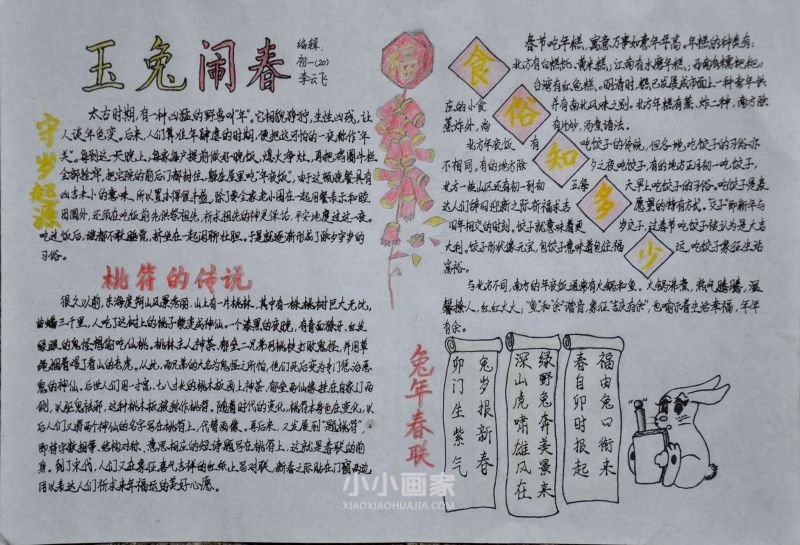 玉兔闹春
编辑:
初一(20)
李云飞
守岁起源
太古时期,有一种凶猛的野兽叫"年"。它相貌狰狞,生性凶残,让
人谈年色变。后来,人们算准年肆虐的时期,便把这可怕的一夜称作"年
关"。每到这一天晚上,每家每户提前做好晚饭,熄火净灶,再把鸡圈牛栏
全部拴牢,把宅院的前后门都封住,躲在屋里吃"年夜饭"。由于这顿晚餐具有
凶吉未卜的意味,所以置办得很丰盛,除了要全家老小围在一起用餐表示和睦
团圆外,还须在吃饭前先供祭祖先,祈求祖先的神灵保佑,平安地度过这一夜。
吃过饭后,谁都不敢睡觉,挤坐在一起闲聊壮胆。于是就逐渐形成了除夕守岁的
习俗。
桃符的传说
很久以前,东海度朔山风景秀丽,山上有一片桃林,其中有一株桃树巨大无比,
曲蟠三千里,人吃了这树上的桃子能变成神仙。一个漆黑的夜晚,有青面獠牙、红发
绿眼的鬼怪想偷吃仙桃。桃林主人神荼、郁垒二兄弟用桃枝打败鬼怪,并用草
绳捆着喂了看山的老虎。从此,两兄弟的大名为鬼怪之所怕,他们死后变为专门惩治恶
鬼的神仙。后世人们用一寸宽,七八寸长的桃木板画上神荼、郁垒两仙像挂在自家门两
侧,以驱鬼祛邪,这种桃木板被称作桃符。随着时代的变化,桃符本身也在变化,以
后人们又将两个神仙的名字写在桃符上,代替画像。再后来,又发展到"题桃符",
即将字数相等、结构对称、意思相应的短诗题写在桃符上,这就是春联的前
身。到了宋代,人们又在象征喜气吉祥的红纸上写对联,新春之际贴在门窗两边,
用以表达人们祈求来年福运的美好心愿。
福
食俗知多少
春节吃年糕,寓意万事如意年年高。年糕的种类有:
北方有白糕饦、黄米糕;江南有水磨年糕;西南有糯粑粑;
台湾有红龟糕。明清时,糕已发展成市面上一种常年供
应的小食 并有南北风味之别。北方年糕有蒸、炸二种,南方除
蒸炸外,尚 有片炒、汤煮诸法。
北方年夜饭 有 吃饺子的传统,但各地吃饺子的习俗亦
不相同,有的地方除 夕之夜吃饺子,有的地方正月初一吃饺子,
北方一些山区还有初一到初 五每 天早上吃饺子的习俗。吃饺子是表
达人们辞旧迎新之际祈福求吉 愿望的特有方式。子时即新年与
旧年相交的时刻。饺子就意味着更 岁交子,过春节吃饺子被认为是大吉
大利。饺子形状像元宝,包饺子意味着包住福 运,吃饺子象征生活
富裕。
与北方不同,南方的年夜饭通常有火锅和鱼。火锅沸煮,热气腾腾,温
馨撩人,红红火火,"鱼"和"余"谐音,象征"吉庆有余",也喻示着生活幸福,年年
有余。
兔年春联
兔岁报新春
卯门生紫气
绿野兔奔美景来
深山虎啸雄风在
福由兔口衔来
春自卯时报起
小小画家
XIAOXIAOHUAJIA.COM